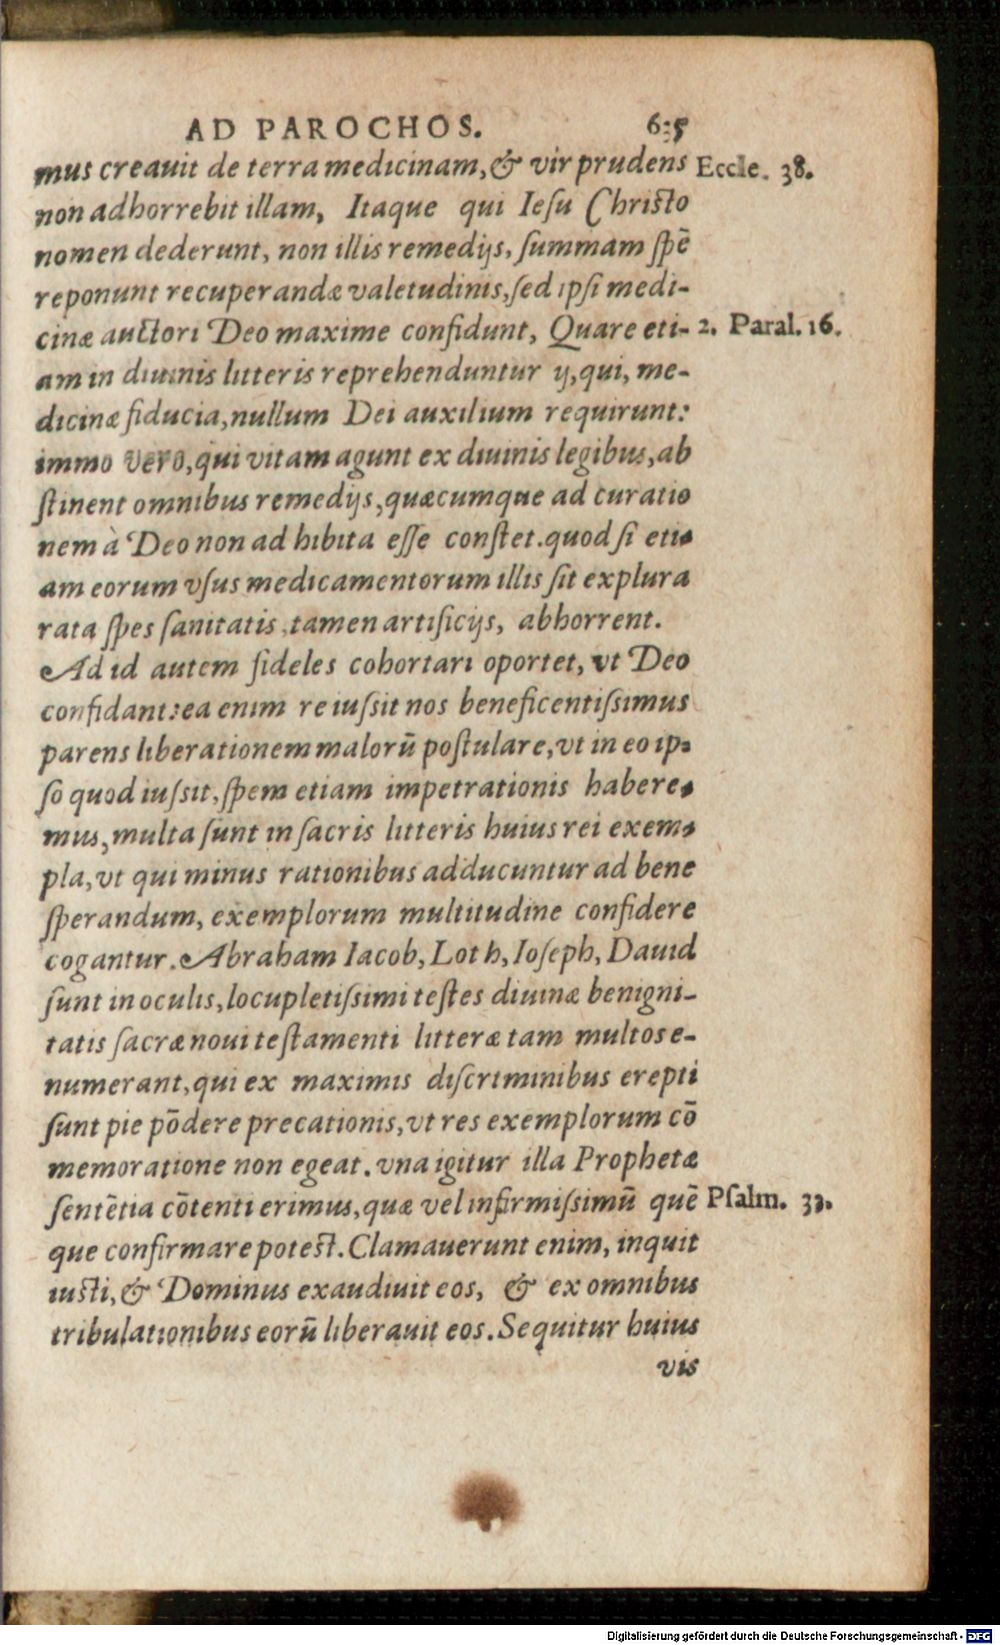 AD PAROCHOS. 6:5
mus creauit de terra medicinam, & vir prudens Eccle. 38.
non adhorrebit illam, Itaque qui Iesu Christo
nomen dederunt, non illis remedijs, ſummam ſpē
reponunt recuperandæ valetudinis, ſed ipſi medi-
cinæ auctori Deo maxime confidunt, Quare eti- 2. Paral. 16.
am in diuinis litteris reprehenduntur ij, qui, me-
dicinæ fiducia, nullum Dei auxilium requirunt:
immo vero, qui vitam agunt ex diuinis legibus, ab
ſtinent omnibus remedijs, quæcumque ad curatio
nem à Deo non adhibita eſſe conſtet. quod ſi eti-
am eorum vſus medicamentorum illis ſit explura
rata ſpes ſanitatis, tamen artificijs, abhorrent.
Ad id autem fideles cohortari oportet, vt Deo
confidant: ea enim re iuſsit nos beneficentiſsimus
parens liberationem malorū poſtulare, vt in eo ip-
ſo quod iuſsit, ſpem etiam impetrationis habere-
mus, multa ſunt in ſacris litteris huius rei exem-
pla, vt qui minus rationibus adducuntur ad bene
ſperandum, exemplorum multitudine confidere
cogantur. Abraham Iacob, Loth, Ioſeph, Dauid
ſunt in oculis, locupletiſsimi teſtes diuinæ benigni-
tatis ſacræ noui teſtamenti litteræ tam multos e-
numerant, qui ex maximis diſcriminibus erepti
ſunt pie pōdere precationis, vt res exemplorum cō
memoratione non egeat. vna igitur illa Prophetæ
ſentētia cōtenti erimus, quæ vel infirmiſsimū quē Pſalm. 33.
que confirmare potest. Clamauerunt enim, inquit
iusti, & Dominus exaudiuit eos, & ex omnibus
tribulationibus eorū liberauit eos. Sequitur huius
vis
Digitalisierung gefördert durch die Deutsche Forschungsgemeinschaft - DFG